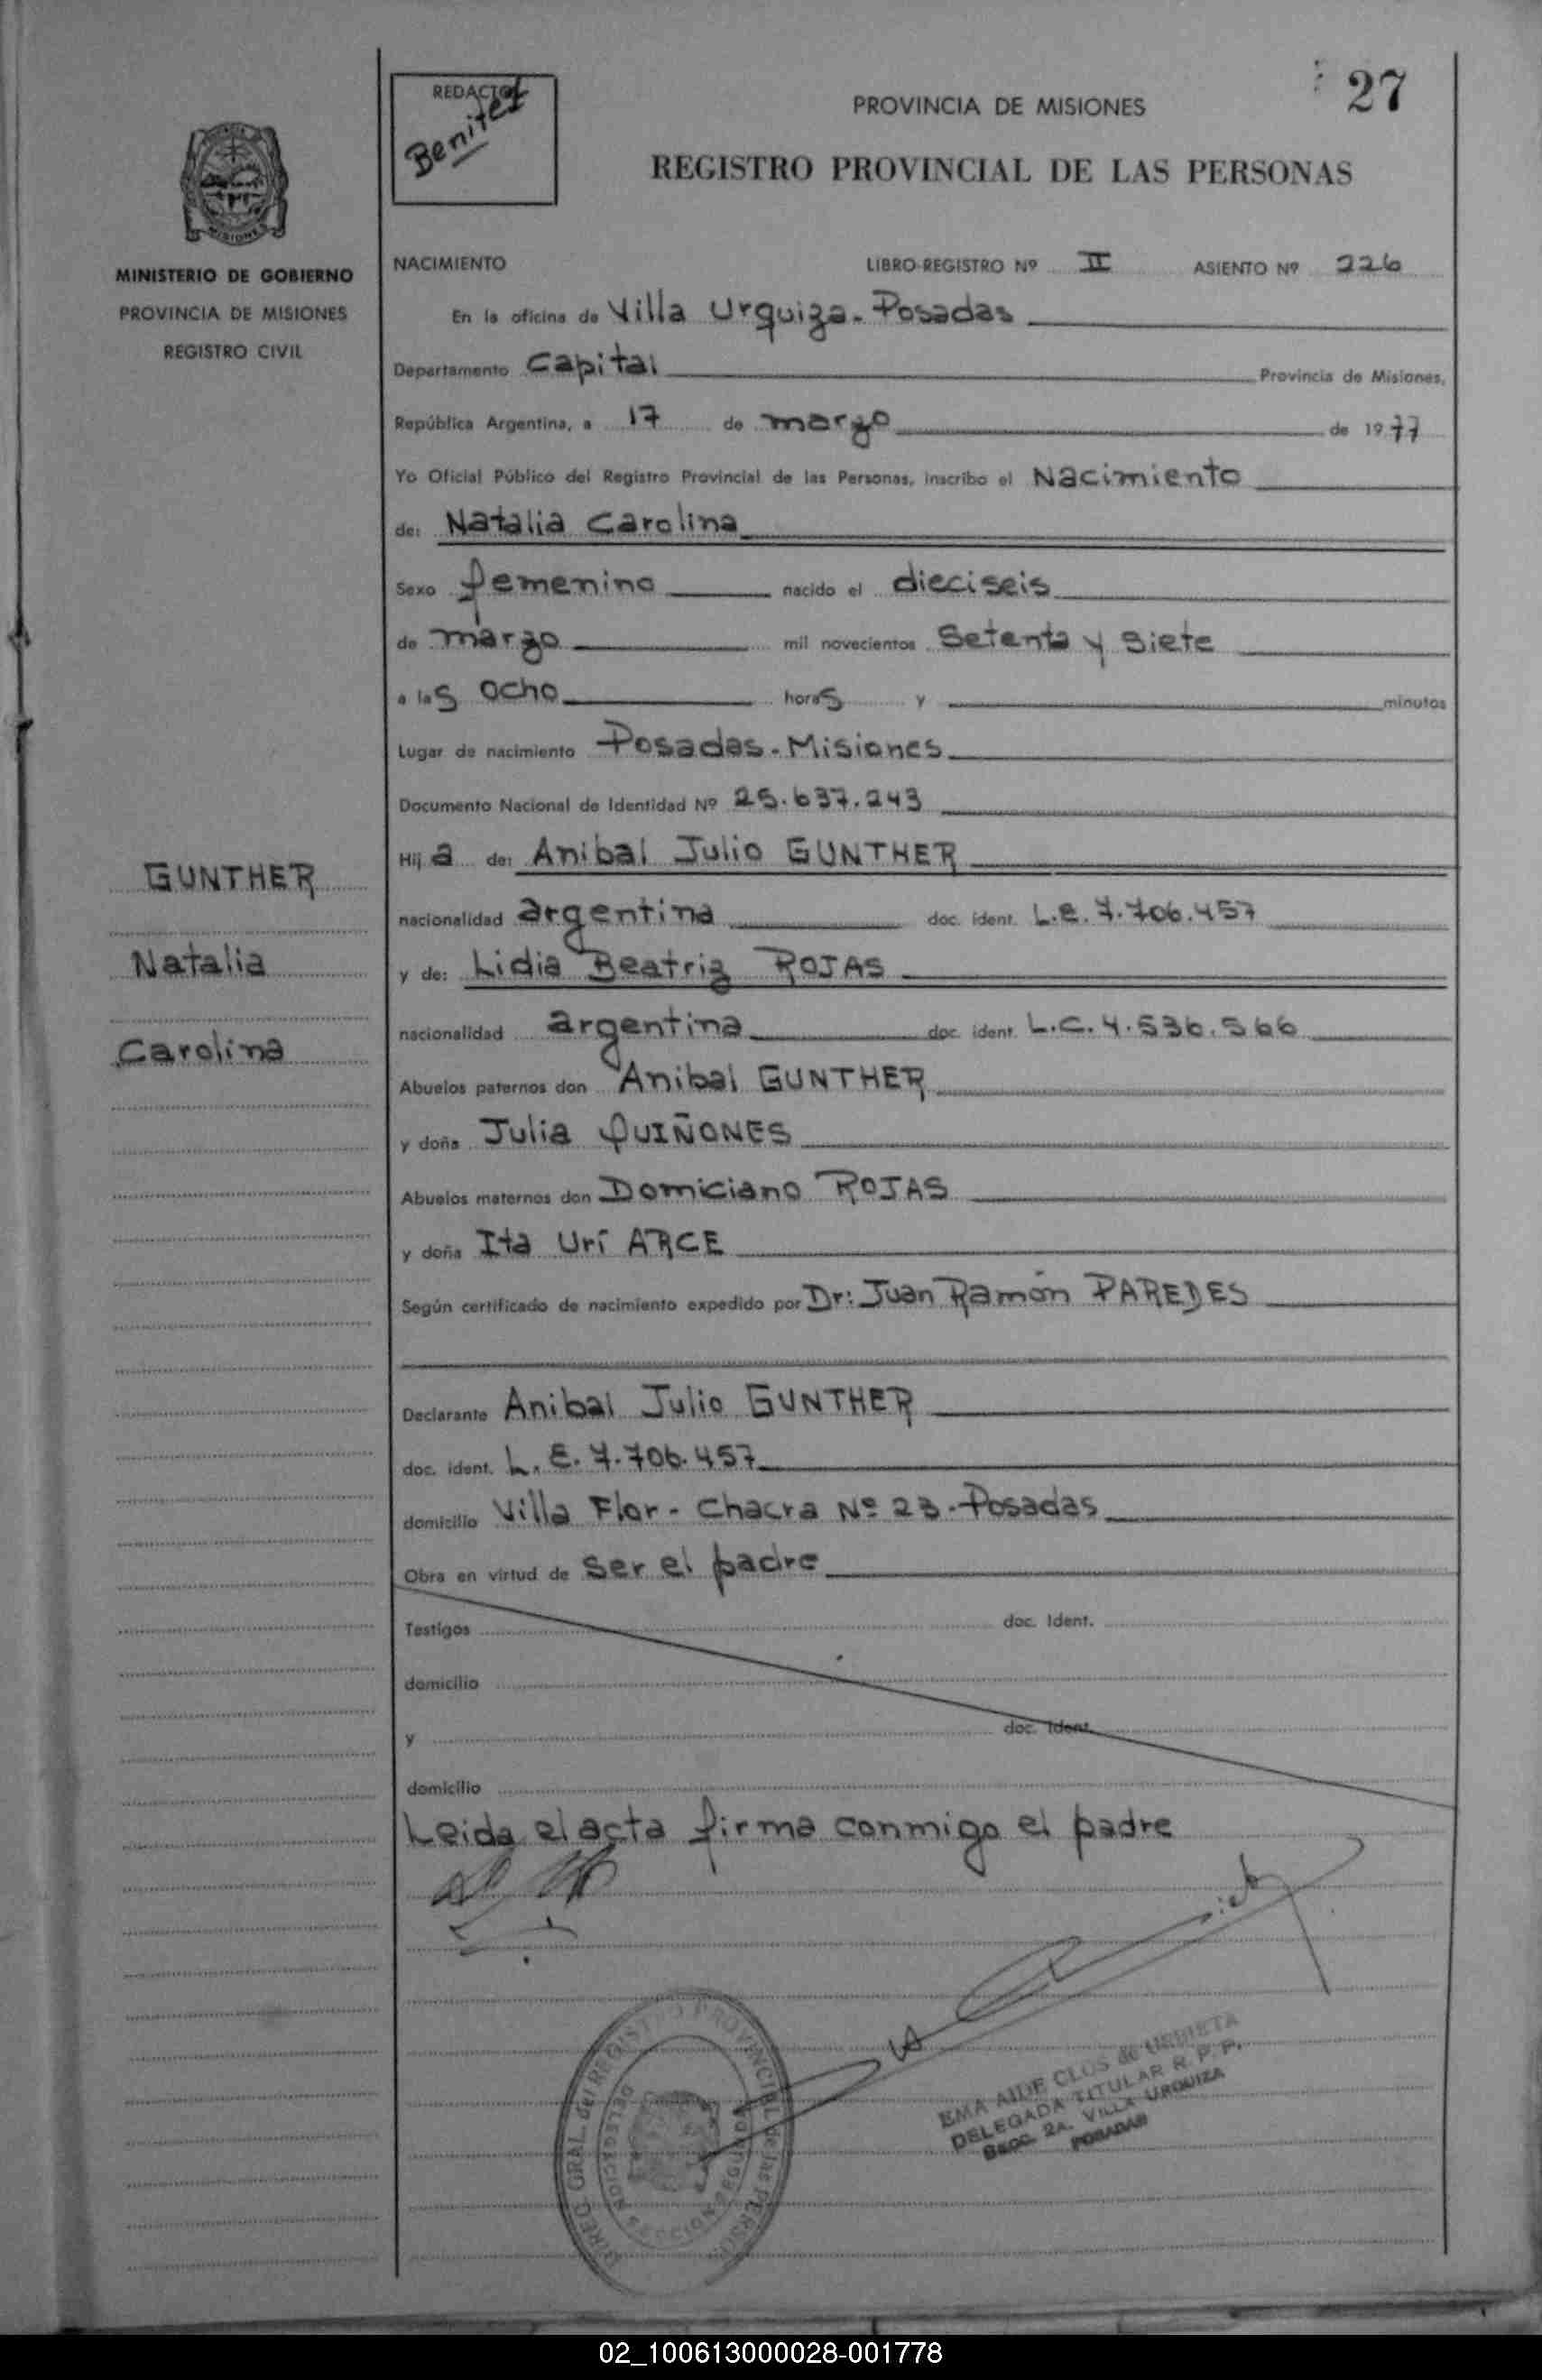 27
REDACTOR
Benitez
PROVINCIA DE MISIONES
REGISTRO PROVINCIAL DE LAS PERSONAS
MISIONES
MINISTERIO DE GOBIERNO
PROVINCIA DE MISIONES
REGISTRO CIVIL
NACIMIENTO LIBRO-REGISTRO Nº II ASIENTO Nº 226
En la oficina de Villa Urquiza - Posadas
Departamento Capital Provincia de Misiones,
República Argentina, a 17 de marzo de 1977
Yo Oficial Público del Registro Provincial de las Personas, inscribo el Nacimiento
de: Natalia Carolina
Sexo femenino nacido el dieciseis
de marzo mil novecientos Setenta y Siete
a las ocho horas y minutos
Lugar de nacimiento Posadas - Misiones
Documento Nacional de Identidad Nº 25.637.243
Hija de: Anibal Julio GUNTHER
nacionalidad argentina doc. ident. L.E. 7.706.457
y de: Lidia Beatriz ROJAS
nacionalidad argentina doc. ident. L.C. 4.536.566
Abuelos paternos don Anibal GUNTHER
y doña Julia QUIÑONES
Abuelos maternos don Domiciano ROJAS
y doña Ita Urí ARCE
Según certificado de nacimiento expedido por Dr: Juan Ramón PAREDES
Declarante Anibal Julio GUNTHER
doc. ident. L.E. 7.706.457
domicilio Villa Flor - Chacra Nº 23 - Posadas
Obra en virtud de ser el padre
Testigos doc. Ident.
domicilio
y doc. Ident.
domicilio
Leida el acta firma conmigo el padre
GUNTHER
Natalia
Carolina
DIREC. GRAL. del REGISTRO PROVINCIAL de las PERSONAS
DELEGACION SECCION SEGUNDA
EMA AIDE CLOS de URBIETA
DELEGADA TITULAR R. P. P.
SECC. 2A. VILLA URQUIZA
POSADAS
02_100613000028-001778